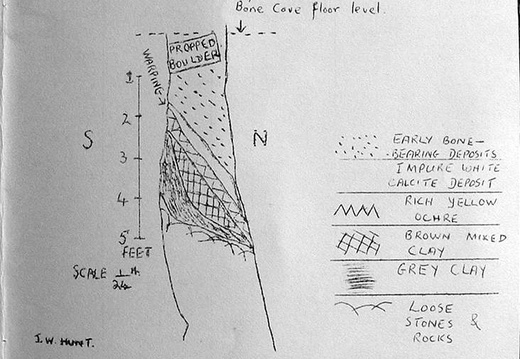 Bone Cave floor level.
PROPPED
BOULDER
WARPING
S
N
1
2
3
4
5'
FEET
SCALE 1/24 th
EARLY BONE-
BEARING DEPOSITS
IMPURE WHITE
CALCITE DEPOSIT
RICH YELLOW
OCHRE
BROWN MIXED
CLAY
GREY CLAY
LOOSE
STONES &
ROCKS
J.W. HUNT.